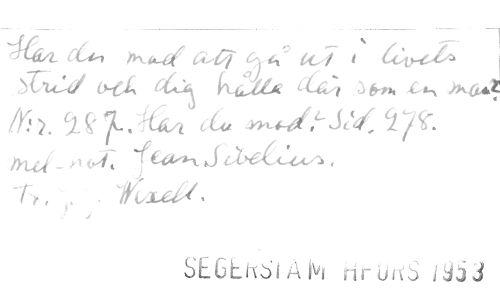 Har du mod att gå ut i livets
strid och dig hålla där som en man?
N:r. 287. Har du mod? Sid. 278.
mel-not. Jean Sibelius.
Tr. Wixell.
SEGERSTAM HFORS 1953